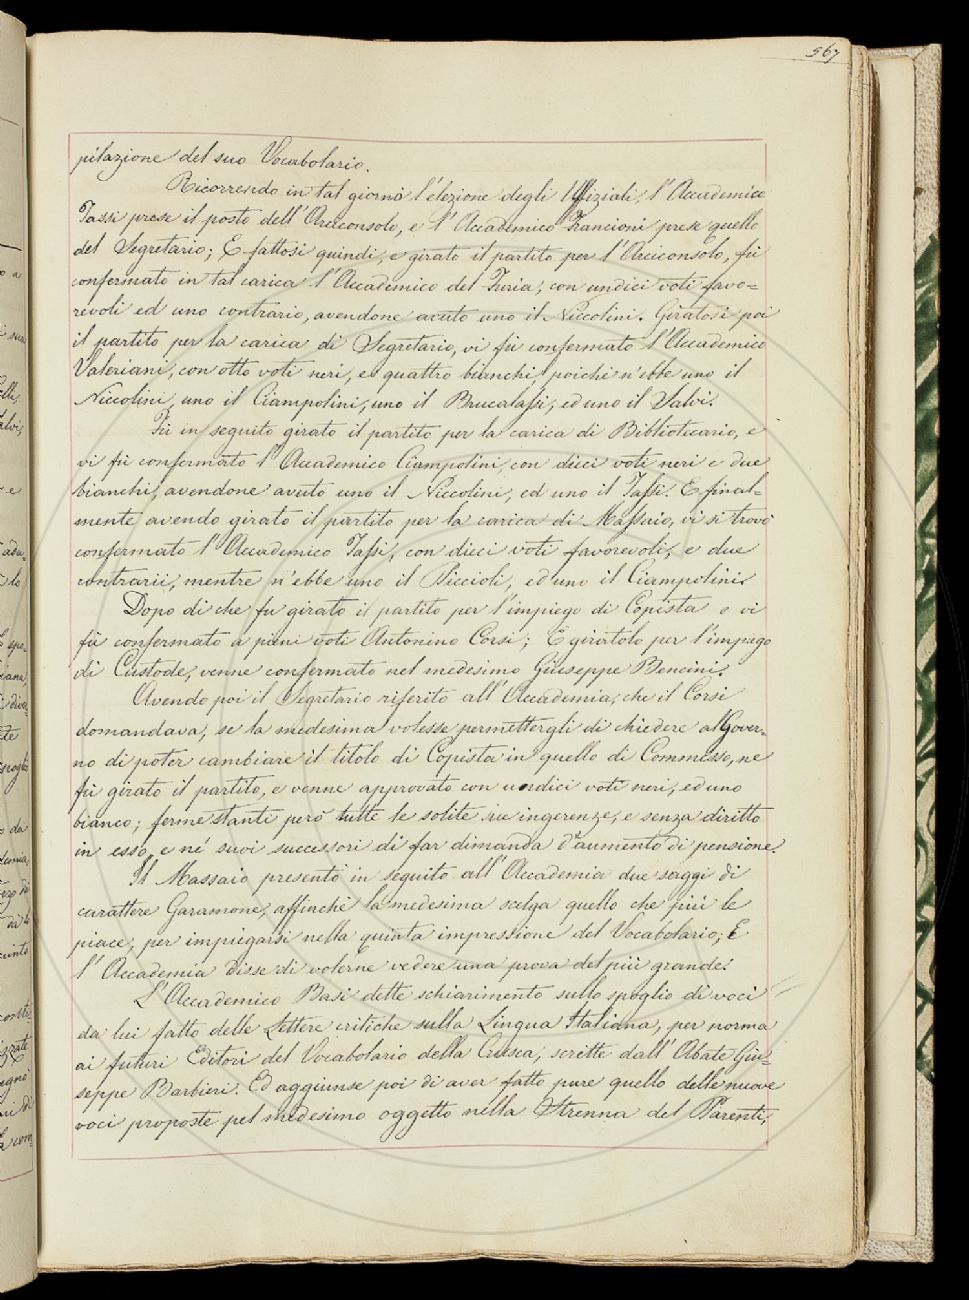 567
pilazione del suo Vocabolario.
Ricorrendo in tal giorno l'elezione degli Uffiziali, l'Accademico
Tassi prese il posto dell'Arciconsolo, e l'Accademico Francioni prese quello
del Segretario; E fattosi quindi, e girato il partito per l'Arciconsolo, fù
confermato in tal carica l'Accademico del Furia, con undici voti favo=
revoli ed uno contrario, avendone avuto uno il Niccolini. Giratosi poi
il partito per la carica di Segretario, vi fù confermato l'Accademico
Valeriani, con otto voti neri, e quattro bianchi, poichè n'ebbe uno il
Niccolini, uno il Ciampolini, uno il Brucalassi, ed uno il Salvi.
Fù in seguito girato il partito per la carica di Bibliotecario, e
vi fù confermato l'Accademico Ciampolini, con dieci voti neri e due
bianchi, avendone avuto uno il Niccolini, ed uno il Tassi. E final=
mente avendo girato il partito per la carica di Massaio, vi si trovò
confermato l'Accademico Tassi, con dieci voti favorevoli, e due
contrarii, mentre n'ebbe uno il Piccioli, ed uno il Ciampolini.
Dopo di che fu girato il partito per l'impiego di Copista e vi
fù confermato a pieni voti Antonino Corsi; E giratolo per l'impiego
di Custode, venne confermato nel medesimo Giuseppe Bencini.
Avendo poi il Segretario riferito all'Accademia, che il Corsi
domandava, se la medesima volesse permettergli di chiedere al Gover=
no di poter cambiare il titolo di Copista in quello di Commesso, ne
fù girato il partito, e venne approvato con undici voti neri, ed uno
bianco; ferme stanti però tutte le solite sue ingerenze, e senza diritto
in esso, e né suoi successori di far dimanda d'aumento di pensione.
Il Massaio presentò in seguito all'Accademia due saggi di
carattere Garamone, affinchè la medesima scelga quello che più le
piace, per impiegarsi nella quinta impressione del Vocabolario; E
l'Accademia disse di volerne vedere una prova del più grande.
L'Accademico Basi dette schiarimento sullo spoglio di voci
da lui fatto delle Lettere critiche sulla Lingua Italiana, per norma
ai futuri Editori del Vocabolario della Crusca, scritte dall'Abate Giu=
seppe Barbieri. Ed aggiunse poi di aver fatto pure quello delle nuove
voci proposte pel medesimo oggetto nella Strenna del Parenti,